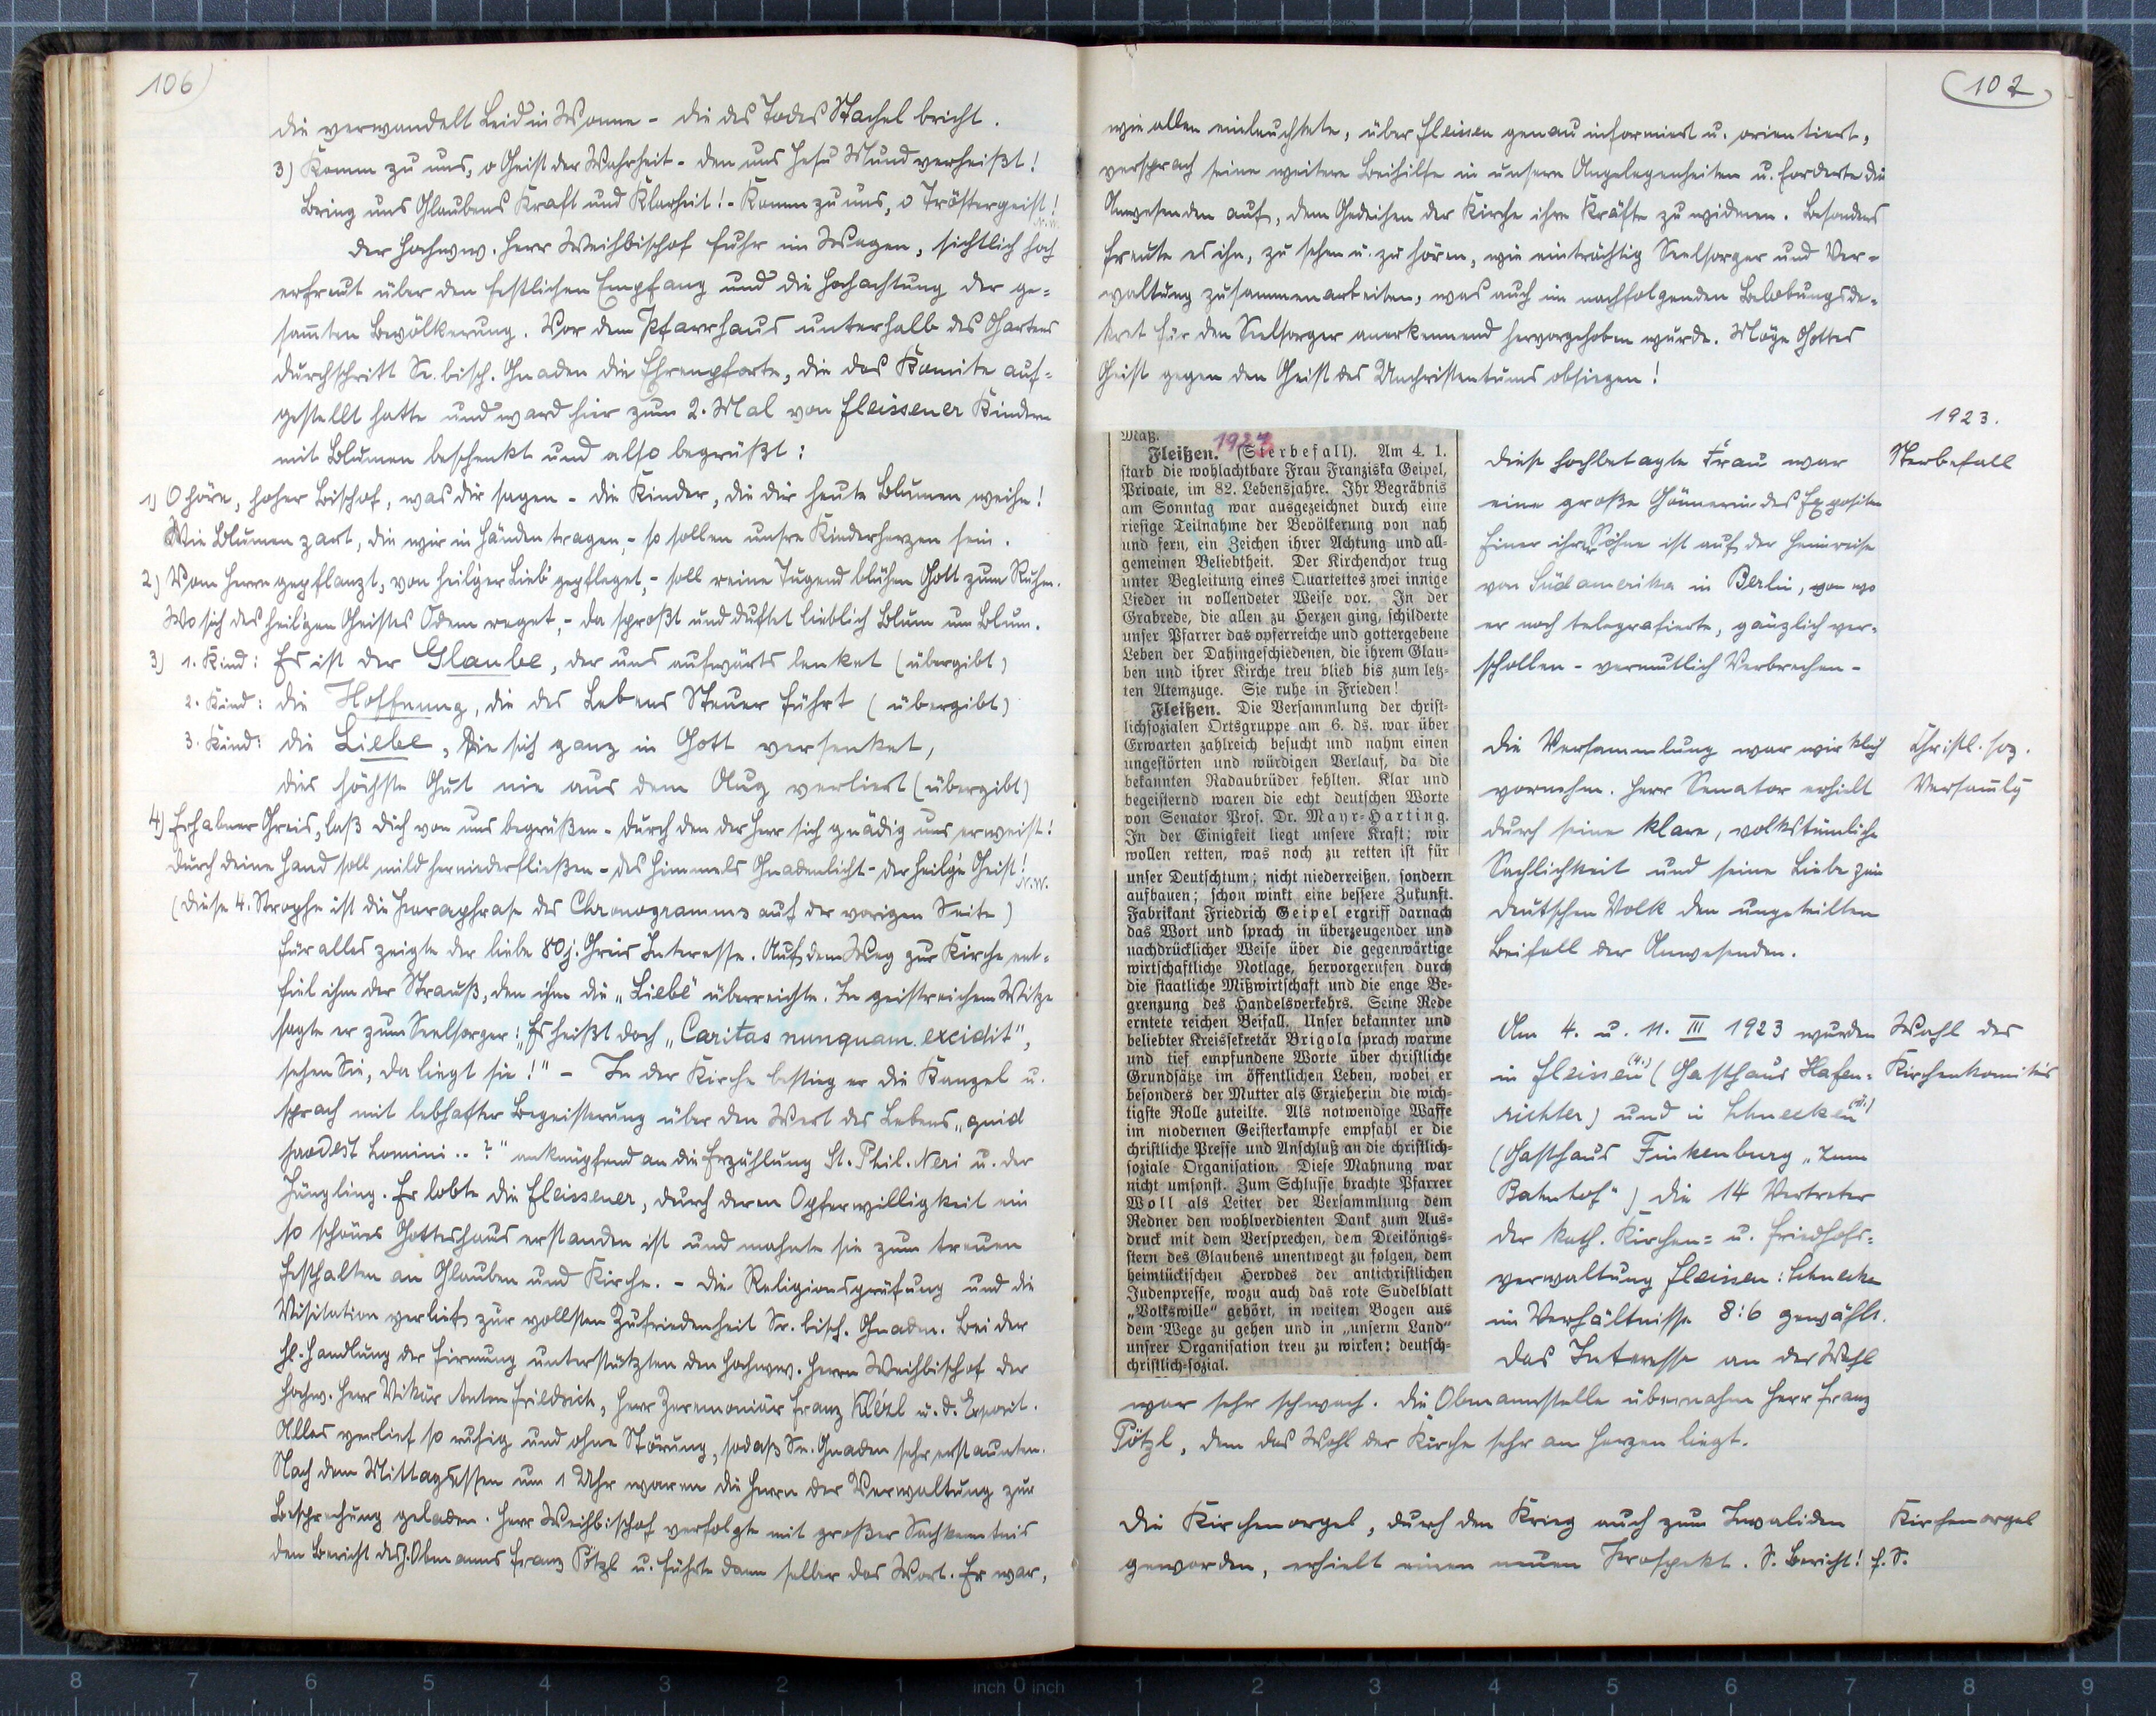 106
die verwandelt Leid in Wonne - die des Todes Stachel bricht.
3) Komm zu uns, o Geist der Wahrheit - den uns Jesu Mund verheißt!
Bring uns Glaubens Kraft und Klarheit! - Komm zu uns, o Tröstergeist!
N.W.
Der hochww. Herr Weihbischof fuhr im Wagen, sichtlich hoch
erfreut über den festlichen Empfang und die Hochachtung der ge=
samten Bevölkerung. Vor dem Pfarrhaus unterhalb des Gartens
durchschritt Se. bisch. Gnaden die Ehrenpforte, die das Komite auf=
gestellt hatte und ward hier zum 2. Mal von Fleissener Kindern
mit Blumen beschenkt und also begrüßt:
1) O höre, hoher Bischof, was dir sagen - die Kinder, die dir heute Blumen weihn!
Wie Blumen zart, die wir in Händen tragen, - so sollen unsre Kinderherzen sein.
2) Vom Herrn gepflanzt, von heil'ger Lieb' gepfleget, - soll reine Tugend blühen Gott zum Ruhm.
Wo sich des heiligen Geistes Odem reget, - da sproßt und duftet lieblich Blum um Blum.
3) 1. Kind: Es ist der Glaube, der uns aufwärts lenket (übergibt)
2. Kind: die Hoffnung, die des Lebens Steuer führt (übergibt)
3. Kind: die Liebe, die sich ganz in Gott versenket,
dies höchste Gut nie aus dem Aug verliert (übergibt)
4) Erhabner Greis, laß dich von uns begrüßen - durch den der Herr sich gnädig uns erweist!
Durch deine Hand soll mild herniederfließen - des Himmels Gnadenlicht - der heilge Geist!
N.W.
(Diese 4. Strophe ist die Paraphrase des Chronogramms auf der vorigen Seite)
Für alles zeigte der liebe 80j. Greis Interesse. Auf dem Weg zur Kirche ent=
fiel ihm der Strauß, den ihm die „Liebe" überreichte. In geistreichem Witze
sagte er zum Seelsorger: „Es heißt doch „Caritas nunquam excidit",
sehen Sie, da liegt sie!" - In der Kirche bestieg er die Kanzel u.
sprach mit lebhafter Begeisterung über den Wert des Lebens „quid
prodest homini..?" anknüpfend an die Erzählung St. Phil. Neri u. der
Jüngling. Er lobte die Fleissener, durch deren Opferwilligkeit ein
so schönes Gotteshaus erstanden ist und mahnte sie zum treuen
Festhalten an Glauben und Kirche. - Die Religionsprüfung und die
Visitation verlief zur vollsten Zufriedenheit Sr. bisch. Gnaden. Bei der
hl. Handlung der Firmung unterstützten den hochww. Herrn Weihbischof der
hochw. Herr Vikär Anton Friedrich, Herr Zeremoniär Franz u. d. Exposit.
Alles verlief so ruhig und ohne Störung, sodaß Se. Gnaden sehr erstaunten.
Nach dem Mittagessen um 1 Uhr waren die Herrn der Verwaltung zur
Besprechung geladen. Herr Weihbischof verfolgte mit großer Sachkenntnis
den Bericht des Obmanns Franz Pötzl u. führte dann selber das Wort. Er war,
107
wie allen einleuchtete, über Fleissen genau informiert u. orientiert,
versprach seine weitere Beihilfe in unsern Angelegenheiten u. forderte die
Anwesenden auf, dem Gedeihen der Kirche ihre Kräfte zu widmen. Besonders
freute es ihn, zu sehen u. zu hören, wie einträchtig Seelsorger und Ver=
waltung zusammenarbeiten, was auch im nachfolgenden Belobungsde=
kret für den Seelsorger anerkennend hervorgehoben wurde. Möge Gottes
Geist gegen den Geist des Unchristentums obsiegen!
1923.
Maß.
Fleißen. (Sterbefall). Am 4. 1.
starb die wohlachtbare Frau Franziska Geipel,
Private, im 82. Lebensjahre. Ihr Begräbnis
am Sonntag war ausgezeichnet durch eine
riesige Teilnahme der Bevölkerung von nah
und fern, ein Zeichen ihrer Achtung und all-
gemeinen Beliebtheit. Der Kirchenchor trug
unter Begleitung eines Quartettes zwei innige
Lieder in vollendeter Weise vor. In der
Grabrede, die allen zu Herzen ging, schilderte
unser Pfarrer das opferreiche und gottergebene
Leben der Dahingeschiedenen, die ihrem Glau-
ben und ihrer Kirche treu blieb bis zum letz-
ten Atemzuge. Sie ruhe in Frieden!
Fleißen. Die Versammlung der christ-
lichsozialen Ortsgruppe am 6. ds. war über
Erwarten zahlreich besucht und nahm einen
ungestörten und würdigen Verlauf, da die
bekannten Radaubrüder fehlten. Klar und
begeisternd waren die echt deutschen Worte
von Senator Prof. Dr. Mayr-Harting.
In der Einigkeit liegt unsere Kraft; wir
wollen retten, was noch zu retten ist für
unser Deutschtum; nicht niederreißen, sondern
aufbauen; schon winkt eine bessere Zukunft.
Fabrikant Friedrich Geipel ergriff darnach
das Wort und sprach in überzeugender und
nachdrücklicher Weise über die gegenwärtige
wirtschaftliche Notlage, hervorgerufen durch
die staatliche Mißwirtschaft und die enge Be-
grenzung des Handelsverkehrs. Seine Rede
erntete reichen Beifall. Unser bekannter und
beliebter Kreissekretär Brigola sprach warme
und tief empfundene Worte über christliche
Grundsätze im öffentlichen Leben, wobei er
besonders der Mutter als Erzieherin die wich-
tigste Rolle zuteilte. Als notwendige Waffe
im modernen Geisterkampfe empfahl er die
christliche Presse und Anschluß an die christlich-
soziale Organisation. Diese Mahnung war
nicht umsonst. Zum Schlusse brachte Pfarrer
Woll als Leiter der Versammlung dem
Redner den wohlverdienten Dank zum Aus-
druck mit dem Versprechen, dem Dreikönigs-
stern des Glaubens unentwegt zu folgen, dem
heimtückischen Herodes der antichristlichen
Judenpresse, wozu auch das rote Sudelblatt
„Volkswille" gehört, in weitem Bogen aus
dem Wege zu gehen und in „unserm Land"
unsrer Organisation treu zu wirken: deutsch-
christlich-sozial.
Diese hochbetagte Frau war
eine große Gönnerin des Expositen
Einer ihrer Söhne ist auf der Heimreise
von Südamerika in Berlin, von wo
er noch telegrafierte, gänzlich ver=
schollen - vermutlich Verbrechen -
Sterbefall
Die Versammlung war wirklich
vornehm. Herr Senator erhielt
durch seine klare, volkstümliche
Sachlichkeit und seine Liebe zum
deutschen Volk den ungeteilten
Beifall der Anwesenden.
Christl. soz.
Versamlg
Am 4. u. 11. III 1923 wurden
in Fleissen (4.) (Gasthaus Hafen=
richter) und in Schnecken (11.)
(Gasthaus Finkenburg „Zum
Bahnhof") die 14 Vertreter
der kath. Kirchen= u. Friedhofs=
verwaltung Fleissen: Schnecken
im Verhältnisse 8:6 gewählt.
Das Interesse an der Wahl
war sehr schwach. Die Obmannstelle übernahm Herr Franz
Pötzl, dem das Wohl der Kirche sehr am Herzen liegt.
Wahl des
Kirchenkomités
Die Kirchenorgel, durch den Krieg auch zum Invaliden
geworden, erhielt einen neuen Prospekt. S. Bericht! f. S.
Kirchenorgel
8 7 6 5 4 3 2 1 inch 0 inch 1 2 3 4 5 6 7 8 9